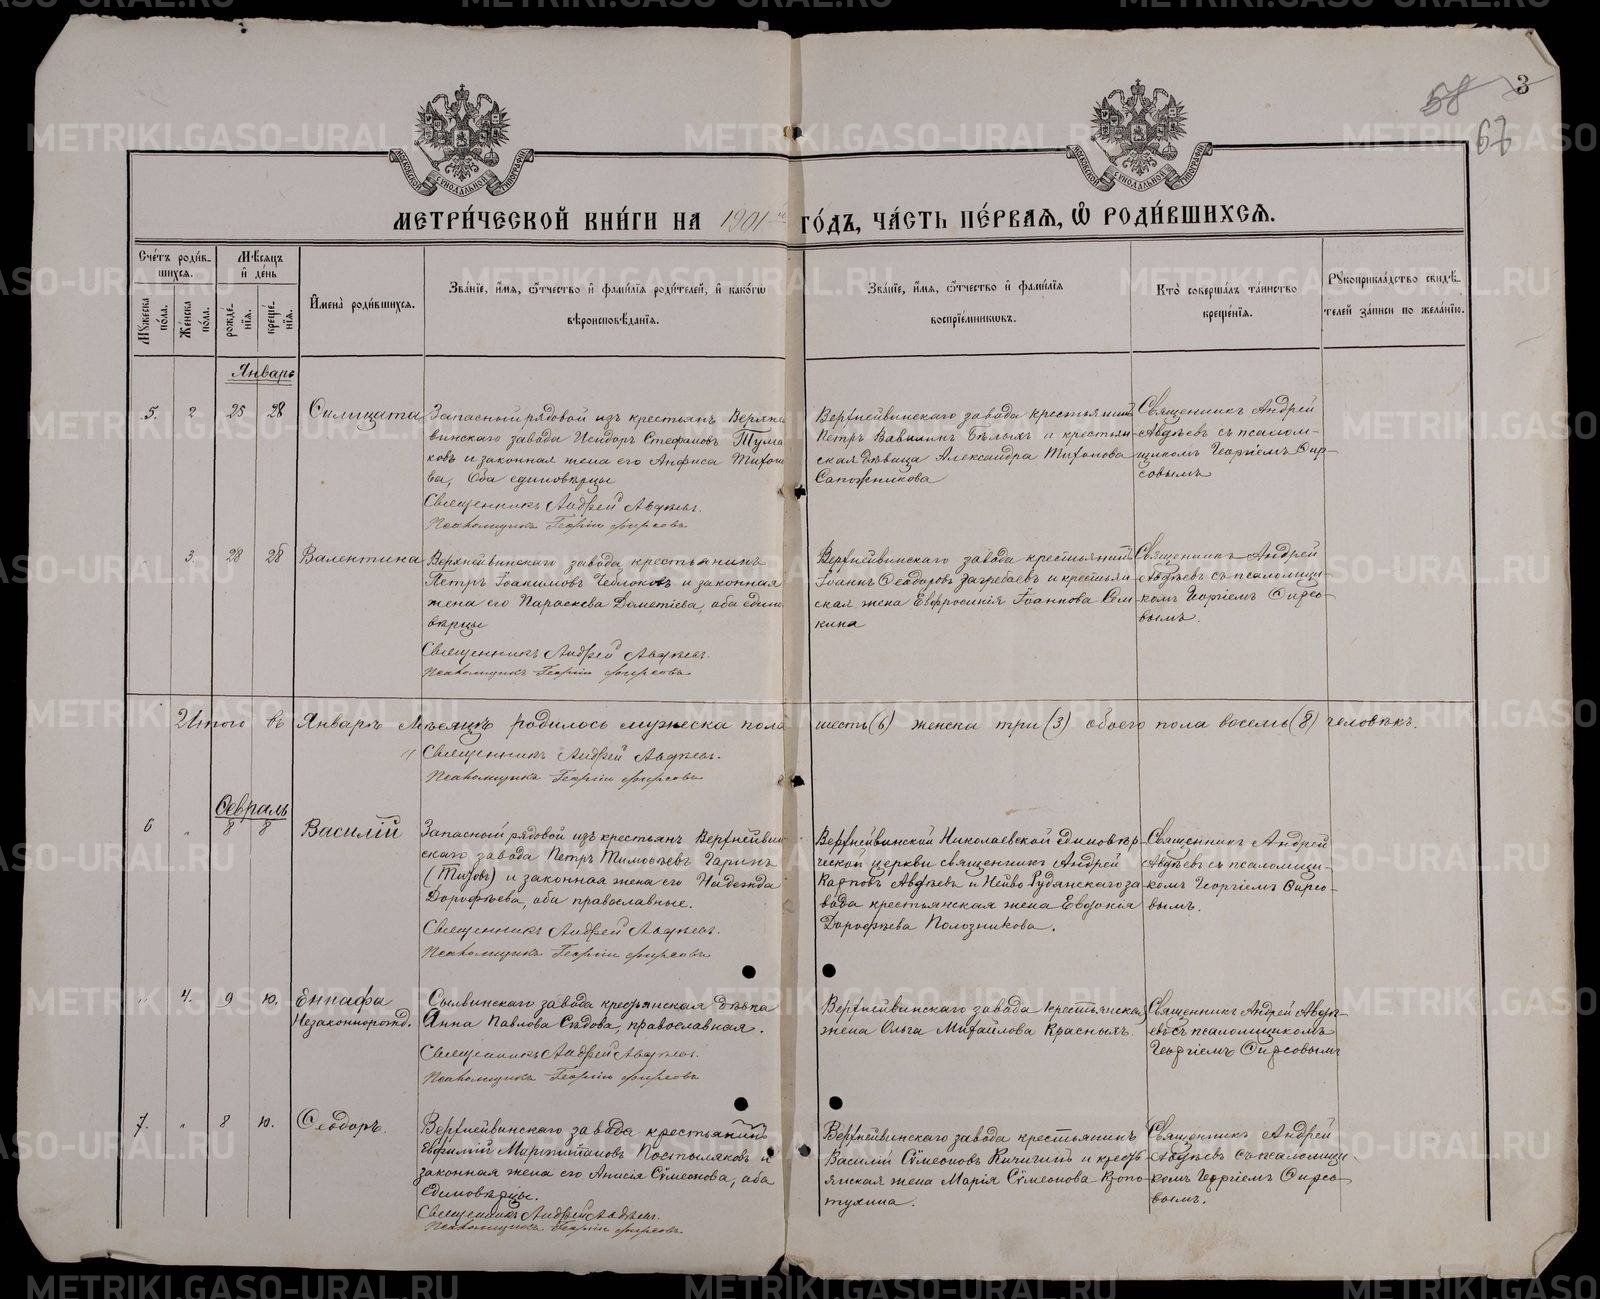 58 3
67
МЕТРИ́ЧЕСКОЙ КНИ́ГИ НА 1901 ГО́ДЪ, ЧА́СТЬ ПЕ́РВАЯ, Ѡ РОДИ́ВШИХСЯ.
Сче́тъ роди́в-
шихся.
Мѣ́сяцъ
и де́нь
Мꙋжеска по́ла.
Же́нска по́ла.
рожде́-
нїя.
креще́-
нїя.
Имена̀ роди́вшихся.
Зва́нїе, и́мя, ѻ́тчество и фами́лїя роди́телей, и како́гѡ
вѣроисповѣ́данїя.
Зва́нїе, и́мя, ѻ́тчество и фами́лїя
воспрїе́мникѡвъ.
Кто̀ соверша́лъ та́инство
креще́нїя.
Рꙋкоприкла́дство свидѣ́-
телей за́писи по жела́нїю.
Январь
5. 2 25 28
Запасный рядовой изъ крестьянъ Верхне
винскаго завода Исидоръ Стефановъ Тума
ковъ и законная жена его Анфиса Тихоно
ва, Оба единовѣрцы
Священникъ Андрей Авдѣевъ.
Псаломщикъ Георгій Фирсовъ
Верхнейвинскаго завода крестьянинъ
Петръ Вавилинъ Бѣлыхъ и крестьян
ская дѣвица Александра Тихонова
Сапожникова
Священникъ Андрей
Авдѣевъ съ псалом-
щикомъ Георгіемъ Фир-
совымъ
3. 28 28 Валентина
Верхнейвинскаго завода крестьянинъ
Петръ Іоакимовъ и законная
жена его Параскева Дометіева, оба едино
вѣрцы
Священникъ Андрей Авдѣевъ.
Псаломщикъ Георгій Фирсовъ
Верхнейвинскаго завода крестьянинъ
Іоаннъ Ѳеодоровъ Загребаевъ и крестьян
ская жена Евфросинія Іоаннова Сем
кина
Священникъ Андрей
Авдѣевъ съ псаломщи-
комъ Георгіемъ Фирсо-
вымъ.
Итого въ Январѣ Мѣсяцѣ родилось мужеска пола шесть (6) женска три (3) обоего пола восемь (8) человѣкъ.
Священникъ Андрей Авдѣевъ.
Псаломщикъ Георгій Фирсовъ
Февраль
6 " 8 8 Василій
Запасный рядовой изъ крестьянъ Верхнейвин
скаго завода Петръ Тимоѳеевъ Гаринъ
(Титовъ) и законная жена его Надежда
Дорофѣева, оба православные.
Священникъ Андрей Авдѣевъ.
Псаломщикъ Георгій Фирсовъ
Верхнейвинской Николаевской Единовѣр-
ческой церкви священникъ Андрей
Карповъ Авдѣевъ и Нейво Рудянскаго за
вода крестьянская жена Евдокія
Дорофѣева Полозникова.
Священникъ Андрей
Авдѣевъ съ псаломщи-
комъ Георгіемъ Фирсо-
вымъ.
" 4. 9 10. Еннафа
Незаконнорожд.
Сылвинскаго завода крестьянская дѣвка
Анна Павлова Сѣдова, православная.
Священникъ Андрей Авдѣевъ.
Псаломщикъ Георгій Фирсовъ
Верхнейвинскаго завода крестьянская
жена Ольга Михайлова Красныхъ
Священникъ Андрей Авдѣ-
евъ съ псаломщикомъ
Георгіемъ Фирсовымъ
7. " 8 10. Ѳеодоръ.
Верхнейвинскаго завода крестьянинъ
Евфимій Мартиніановъ Постыляковъ и
законная жена его Анисія Сѵмеонова, оба
Единовѣрцы.
Священникъ Андрей Авдѣевъ.
Псаломщикъ Георгій Фирсовъ
Верхнейвинскаго завода крестьянинъ
Василій Сѵмеоновъ Кичигинъ и кресть
янская жена Марія Сѵмеонова Кропо
тухина.
Священникъ Андрей
Авдѣевъ съ псаломщи-
комъ Георгіемъ Фирсо-
вымъ.
METRIKI.GASO-URAL.RU